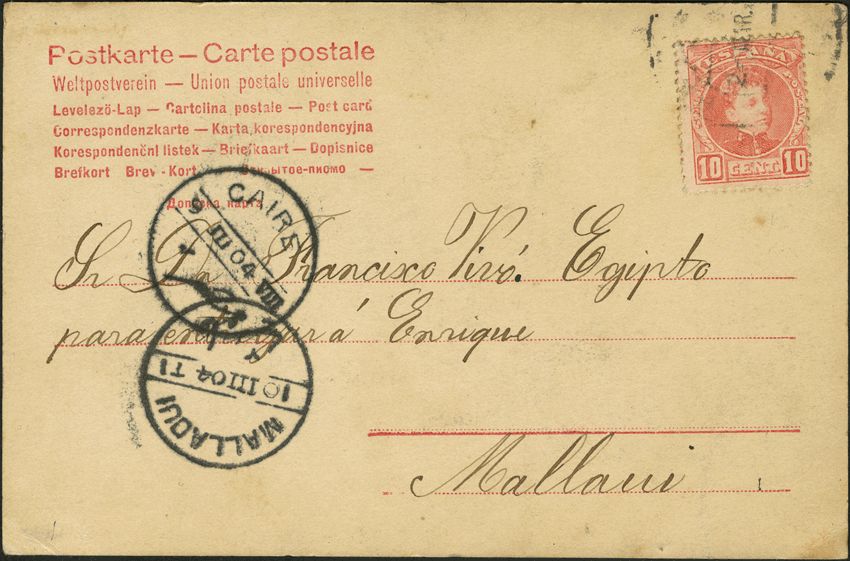 Postkarte — Carte postale
Weltpostverein — Union postale universelle
Levelező-Lap — Cartolina postale — Post card
Correspondenzkarte — Karta korespondencyjna
Korespondenční listek — Briefkaart — Dopisnice
Brefkort Brev-Kort Открытое-письмо —
Дописна карта
ESPAÑA
10 CENT 10
CAIRE
9 III 04 VIII
Sr Dn Francisco Viró. Egipto
para entregar á Enrique
10 III 04 T1
MALLAOUI
Mallaui